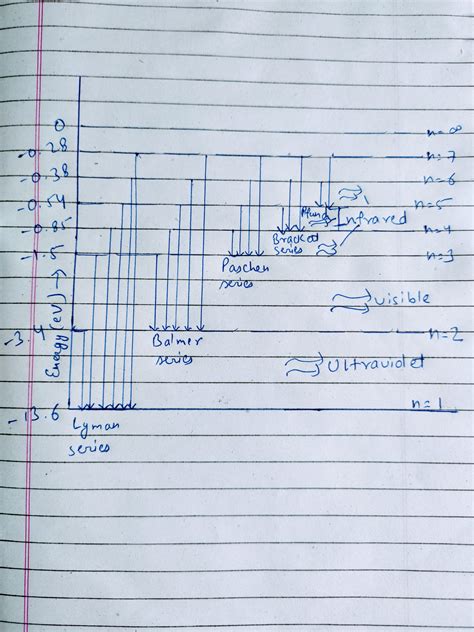 0 n=∞
-0.28 n=7
-0.38 n=6
-0.54 n=5
Pfund Infrared
-0.85 n=4
Bracket
series
-1.5 n=3
Paschen
series
Energy (eV) →
visible
-3.4 n=2
Balmer
series
Ultraviolet
-13.6 n=1
Lyman
series